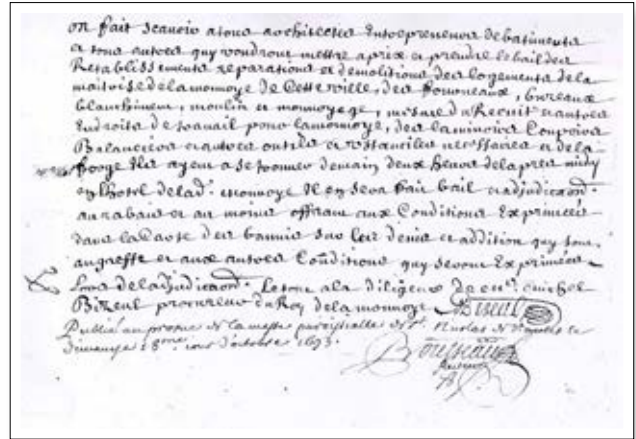 on fait scauoir a tous architectes Entrepreneurs de batiments
et tous autres quy voudront mettre a prix et prendre le bail des
Retablissements reparations et demolitions des logements de la
maitrise de la monnoye de Cette ville, des fourneaux, bureaux
blanchiment, moulin et monnoyage, et autres
Endroits de trauail pour la monnoye, des laminoirs Coupoirs
Balanciers et autres outils et vstancilles necessaires et de la
forge Ils ayent a se trouuer demain deux heures de lapres midy
en lhotel de lad. monnoye Il en sera fait bail et adjudicaon.
au rabais et au moins offrant aux Conditions Exprimées
dans la des bannies sur leur et addition quy sont
au greffe et aux autres Conditions quy seront Exprimées
Lors de ladjudicaon. Le tout a la diligence de
procureur du Roy de la monnoye
Publié au prosne de la messe parroissialle de St. Nicolas de le
dimanche 18me. jour d'octobre 1693.